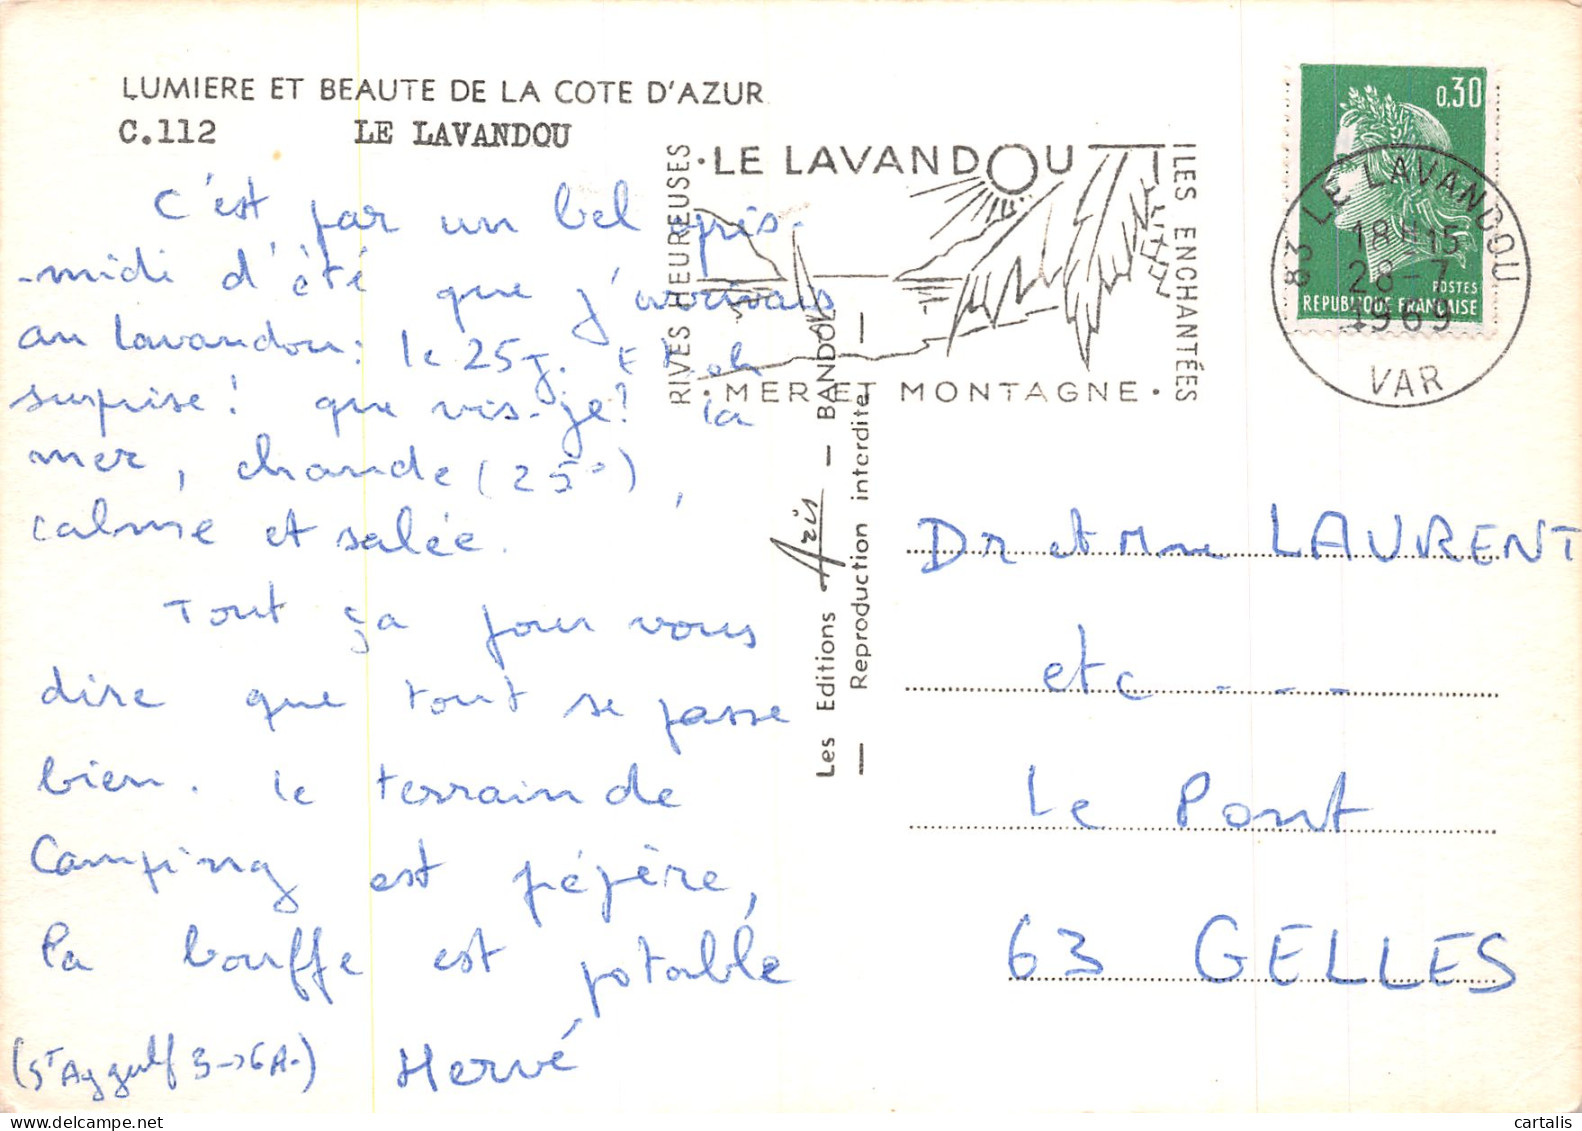 LUMIERE ET BEAUTE DE LA COTE D'AZUR
C.112 LE LAVANDOU
C'est par un bel après-
-midi d'été que j'arrivais
au Lavandou: le 25 J. Et oh
surprise! que vis-je? la
mer, chaude (25°),
calme et salée.
Tout ça pour vous
dire que tout se passe
bien. le terrain de
Camping est pépère,
la bouffe est potable
(St Aygulf 3→6 A.) Hervé
Les Editions Aris — BANDOL
Reproduction interdite
RIVES HEUREUSES
·LE LAVANDOU
ILES ENCHANTÉES
·MER ET MONTAGNE·
0,30
POSTES
REPUBLIQUE FRANÇAISE
83 LE LAVANDOU
18H15
28-7
1969
VAR
Dr et Mme LAURENT
etc ---
Le Pont
63 GELLES
cartalis
delcampe.net